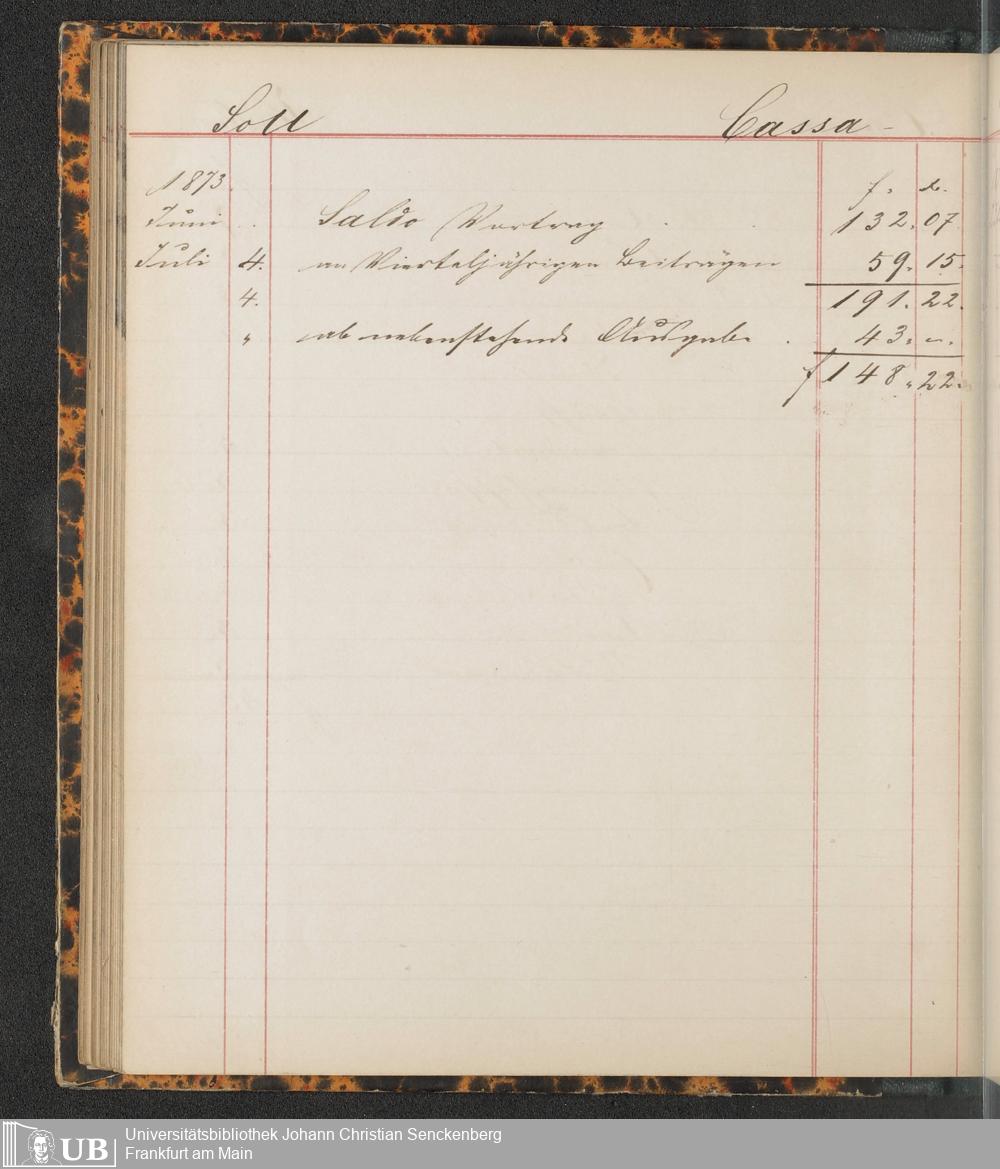 Soll Cassa -
1873. f. x.
Juni . . Saldo Vortrag . . 132. 07.
Juli 4. an Vierteljährigen Beiträgen 59. 15.
4. 191. 22.
" ab nebenstehende Ausgabe . 43. -.
f 148. 22.
UB
Universitätsbibliothek Johann Christian Senckenberg
Frankfurt am Main